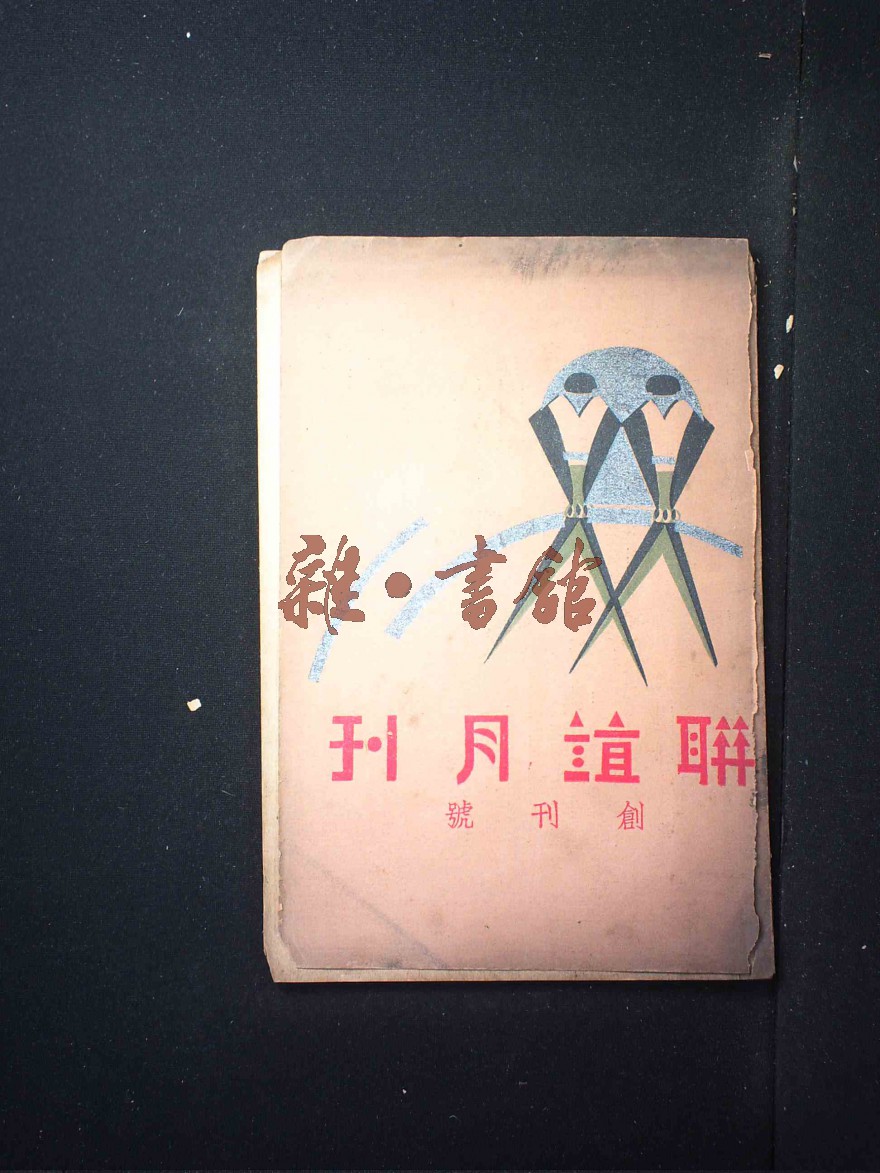 雜·書館
聯誼月刊
創刊號